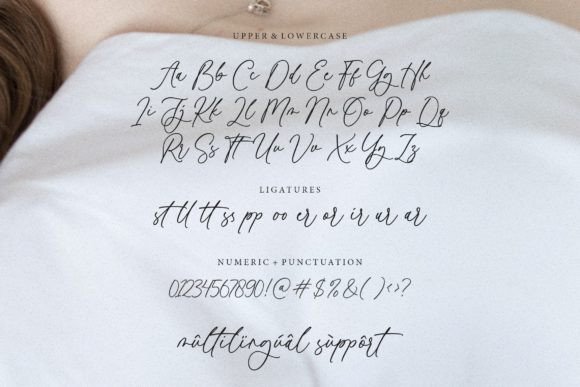 UPPER & LOWERCASE
Aa Bb Cc Dd Ee Ff Gg Hh
Ii Jj Kk Ll Mm Nn Oo Pp Qq
Rr Ss Tt Uu Vv Xx Yy Zz
LIGATURES
st ll tt ss pp oo er or ir ur ar
NUMERIC + PUNCTUATION
01234567890!@#$%&( )<>?
mûltilïngúâl sùppôrt